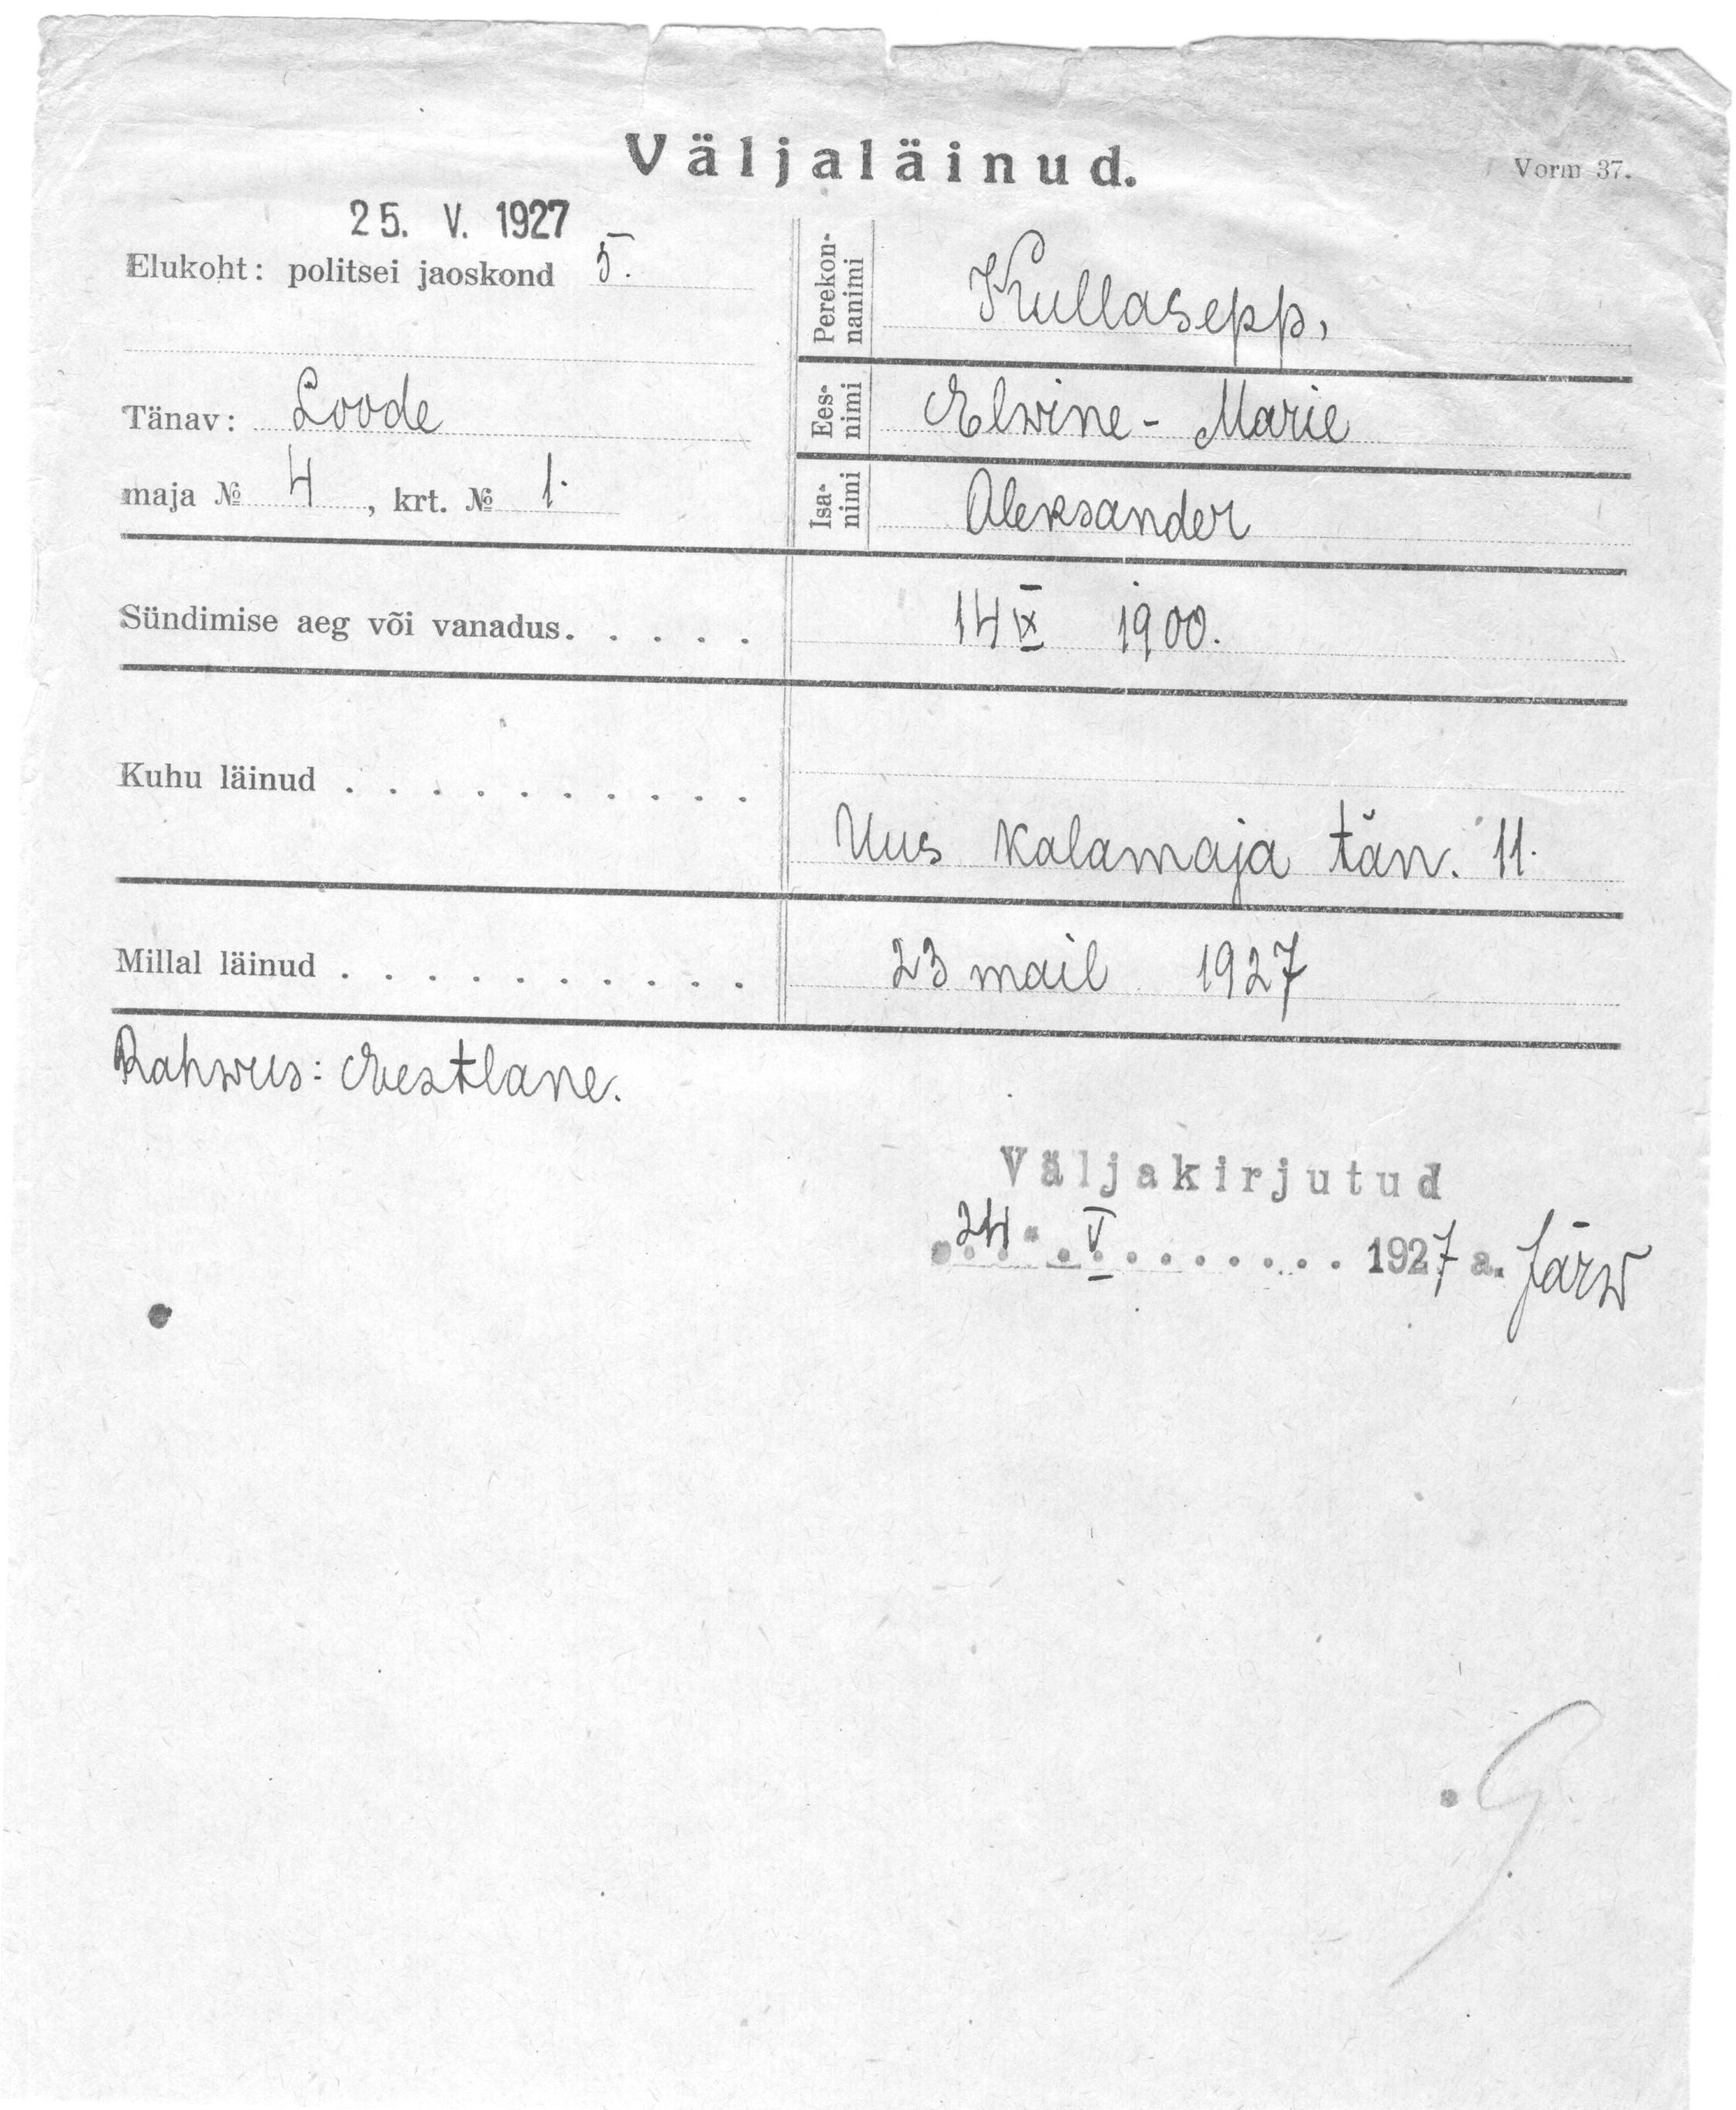 Väljaläinud.
Vorm 37.
25. V. 1927
Elukoht: politsei jaoskond 5.
Tänav: Loode
maja № 4, krt. № 1.
Perekon-
nanimi
Kullasepp,
Ees-
nimi
Elwine - Marie
Isa-
nimi
Aleksander
Sündimise aeg või vanadus. . . . . 14 IX 1900.
Kuhu läinud . . . . . . . . . .
Uus Kalamaja tän. 11.
Millal läinud . . . . . . . . . . 23 mail 1927
Rahwus: Eestlane.
Väljakirjutud
24. V . . . . . . . . 1927 a. Järw